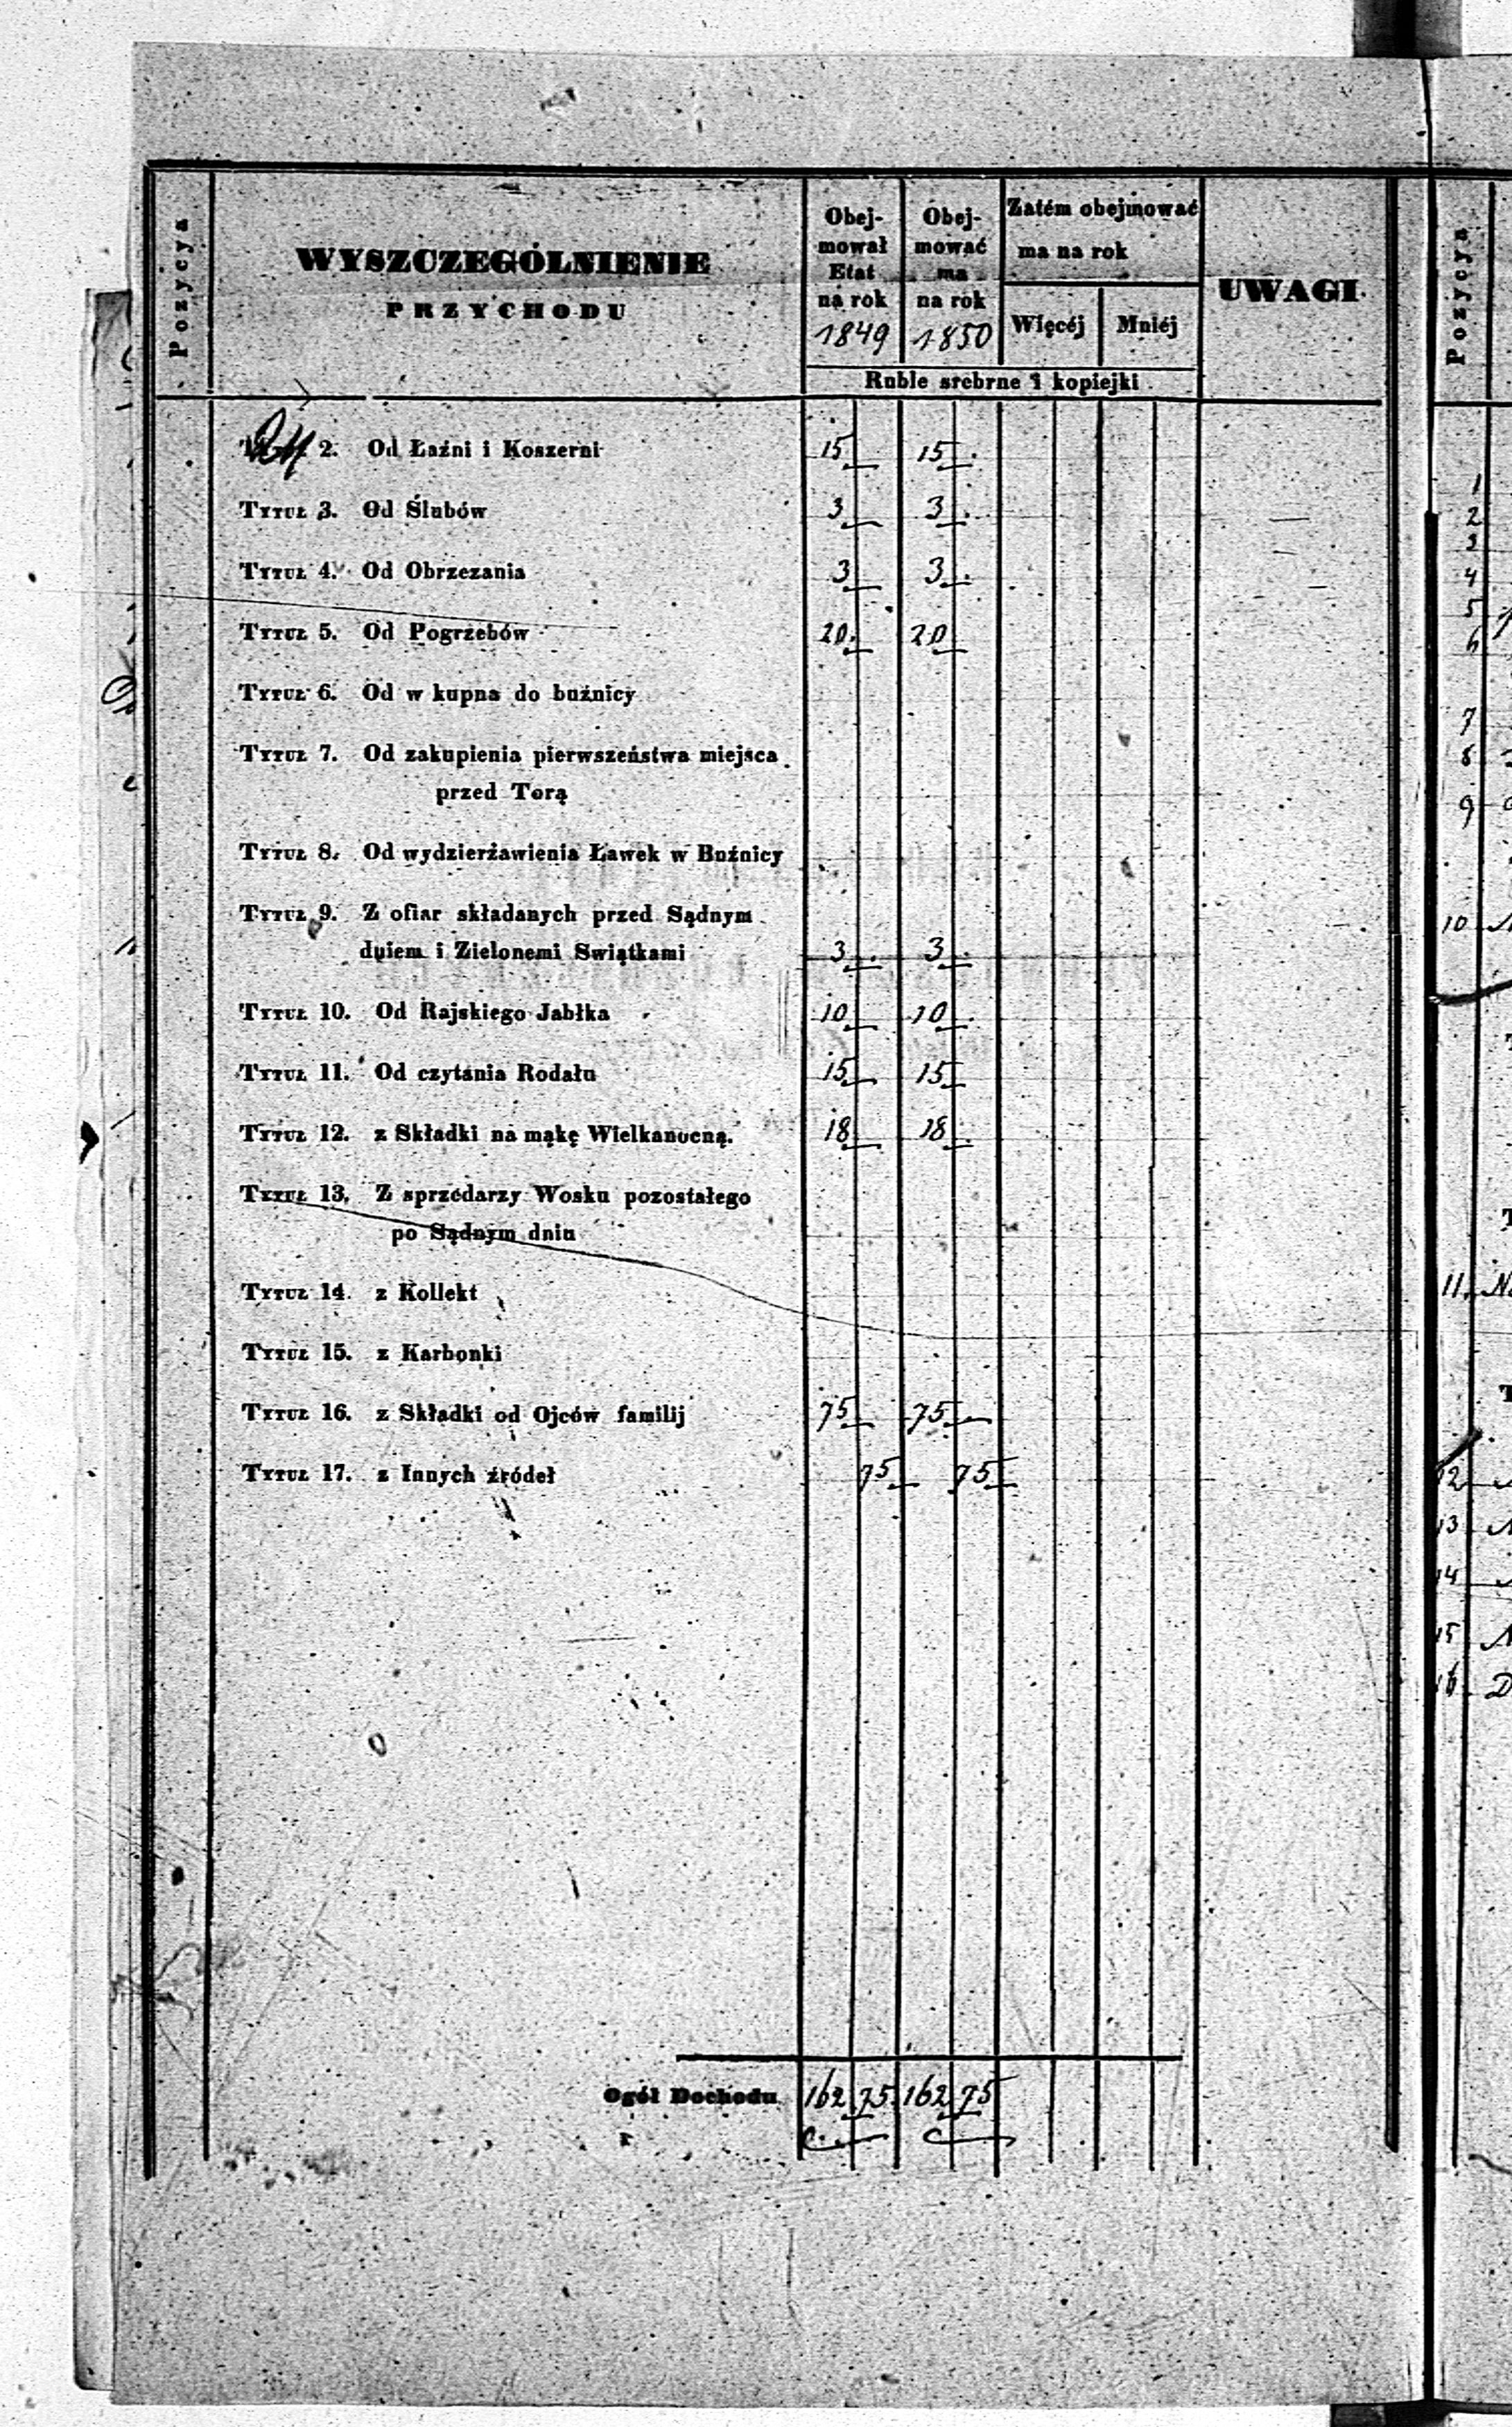 Pozycya
WYSZCZEGÓLNIENIE
PRZYCHODU
Obej-
mował
Etat
na rok
1849
Obej-
mować
ma
na rok
1850
Zatém obejmować
ma na rok
Więcéj Mniéj
UWAGI
Ruble srebrne i kopiejki
2. Od Łaźni i Koszerni 15 15
Tytuł 3. Od Ślubów 3 3
Tytuł 4. Od Obrzezania 3 3
Tytuł 5. Od Pogrzebów 20 20
Tytuł 6. Od w kupna do buźnicy
Tytuł 7. Od zakupienia pierwszeństwa miejsca
przed Torą
Tytuł 8. Od wydzierżawienia Ławek w Buźnicy
Tytuł 9. Z ofiar składanych przed Sądnym
dniem i Zielonemi Swiątkami 3 3
Tytuł 10. Od Rajskiego Jabłka 10 10
Tytuł 11. Od czytania Rodału 15 15
Tytuł 12. z Składki na mąkę Wielkanocną. 18 18
Tytuł 13. Z sprzedarzy Wosku pozostałego
po Sądnym dniu
Tytuł 14. z Kollekt
Tytuł 15. z Karbonki
Tytuł 16. z Składki od Ojców familij 75 75
Tytuł 17. z Innych źródeł 75 75
Ogół Dochodu 162 75 162 75
Pozycya
1
2
3
4
5
6
7
8
9
10
11
12
13
14
15
16